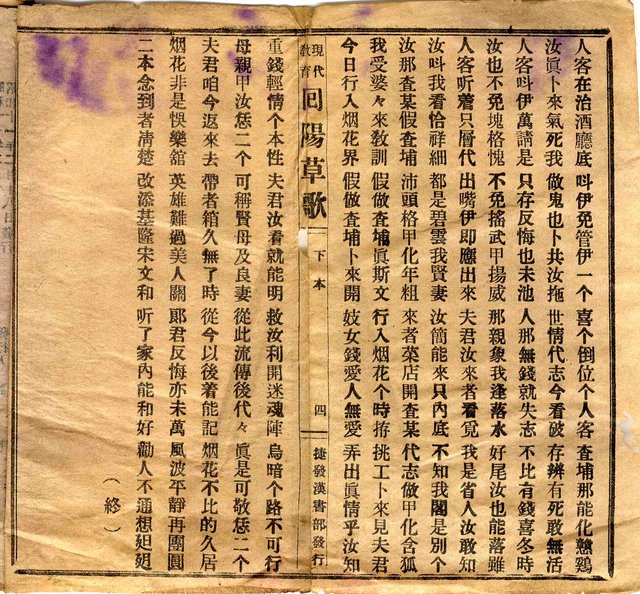 人客在治酒廳底 呌伊免管伊一个 喜个倒位个人客 査埔那能化戇鷄
汝眞卜來氣死我 做鬼也卜共汝拖 世情代志今看破 存辨有死敢無活
人客呌伊萬請是 只存反悔也未池 人那無錢就失志 不比有錢喜冬時
汝也不免塊格愧 不免搖武甲揚威 那親象我逢落水 好尾汝也能落雖
人客听着只層代 出嘴伊即應出來 夫君汝來者看覓 我是省人汝敢知
汝呌我看恰祥細 都是碧雲我賢妻 汝簡能來只內底 不知我閣是別个
汝那査某假査埔 沛頭格甲化年粗 來者菜店開査某 代志做甲化含狐
我受婆々來敎訓 假做査埔眞斯文 行入烟花个時拵 挑工卜來見夫君
今日行入烟花界 假做査埔卜來開 妓女錢愛人無愛 弄出眞情乎汝知
現代敎育 回陽草歌 下本 四 捷發漢書部發行
重錢輕情个本性 夫君汝看就能明 救汝利開迷魂陣 烏暗个路不可行
母親甲汝恁二个 可稱賢母及良妻 從此流傳後代々 眞是可敬恁二个
夫君咱今返來去 帶者箱久無了時 從今以後着能記 烟花不比的久居
烟花非是快樂舘 英雄難過美人關 郞君反悔亦未萬 風波平靜再團圓
二本念到者淸楚 改添基隆宋文和 听了家內能和好 勸人不通想妲
（終）